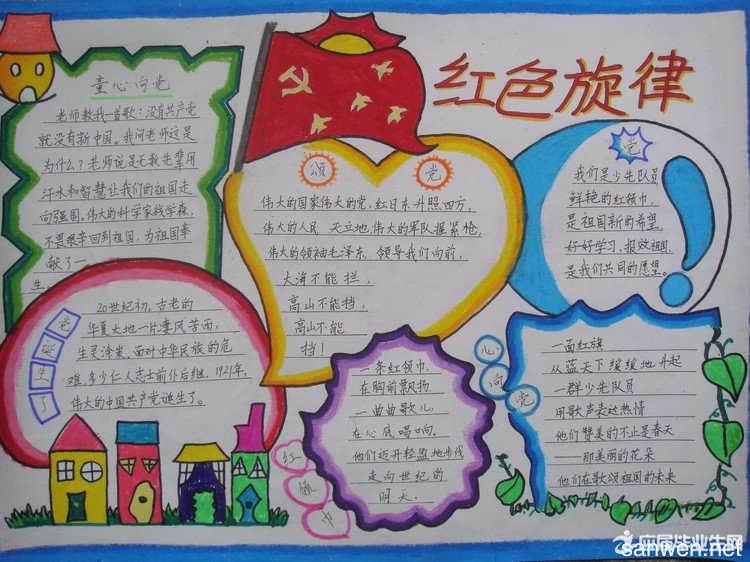 红色旋律
童心向党
老师教我一首歌：没有共产党
就没有新中国。我问老师这是
为什么？老师说是无数先辈用
汗水和智慧让我们的祖国走
向强国，伟大的科学家钱学森，
不畏艰辛回到祖国，为祖国奉
献了一
生。
颂 党
伟大的国家伟大的党，红日东升照四方，
伟大的人民 天立地，伟大的军队握紧枪，
伟大的领袖毛泽东，领导我们向前，
大海不能拦，
高山不能挡，
高山不能
挡！
党
我们是少先队员
鲜艳的红领巾，
是祖国新的希望。
好好学习，报效祖国
是我们共同的愿望。
党诞生了
20世纪初，古老的
华夏大地一片凄风苦雨，
生灵涂炭，面对中华民族的危
难，多少仁人志士前仆后继，1921年，
伟大的中国共产党诞生了。
红领巾
一条红领巾，
在胸前飘扬
一曲曲歌儿
在心底唱响，
他们迈开轻盈地步伐
走向世纪的
明天。
心向党
一面红旗
从蓝天下缓缓地升起
一群少先队员
用歌声表达热情
他们赞美的不止是春天
——那美丽的花朵
他们在歌颂祖国的未来
应届毕业生网
sanwen.net